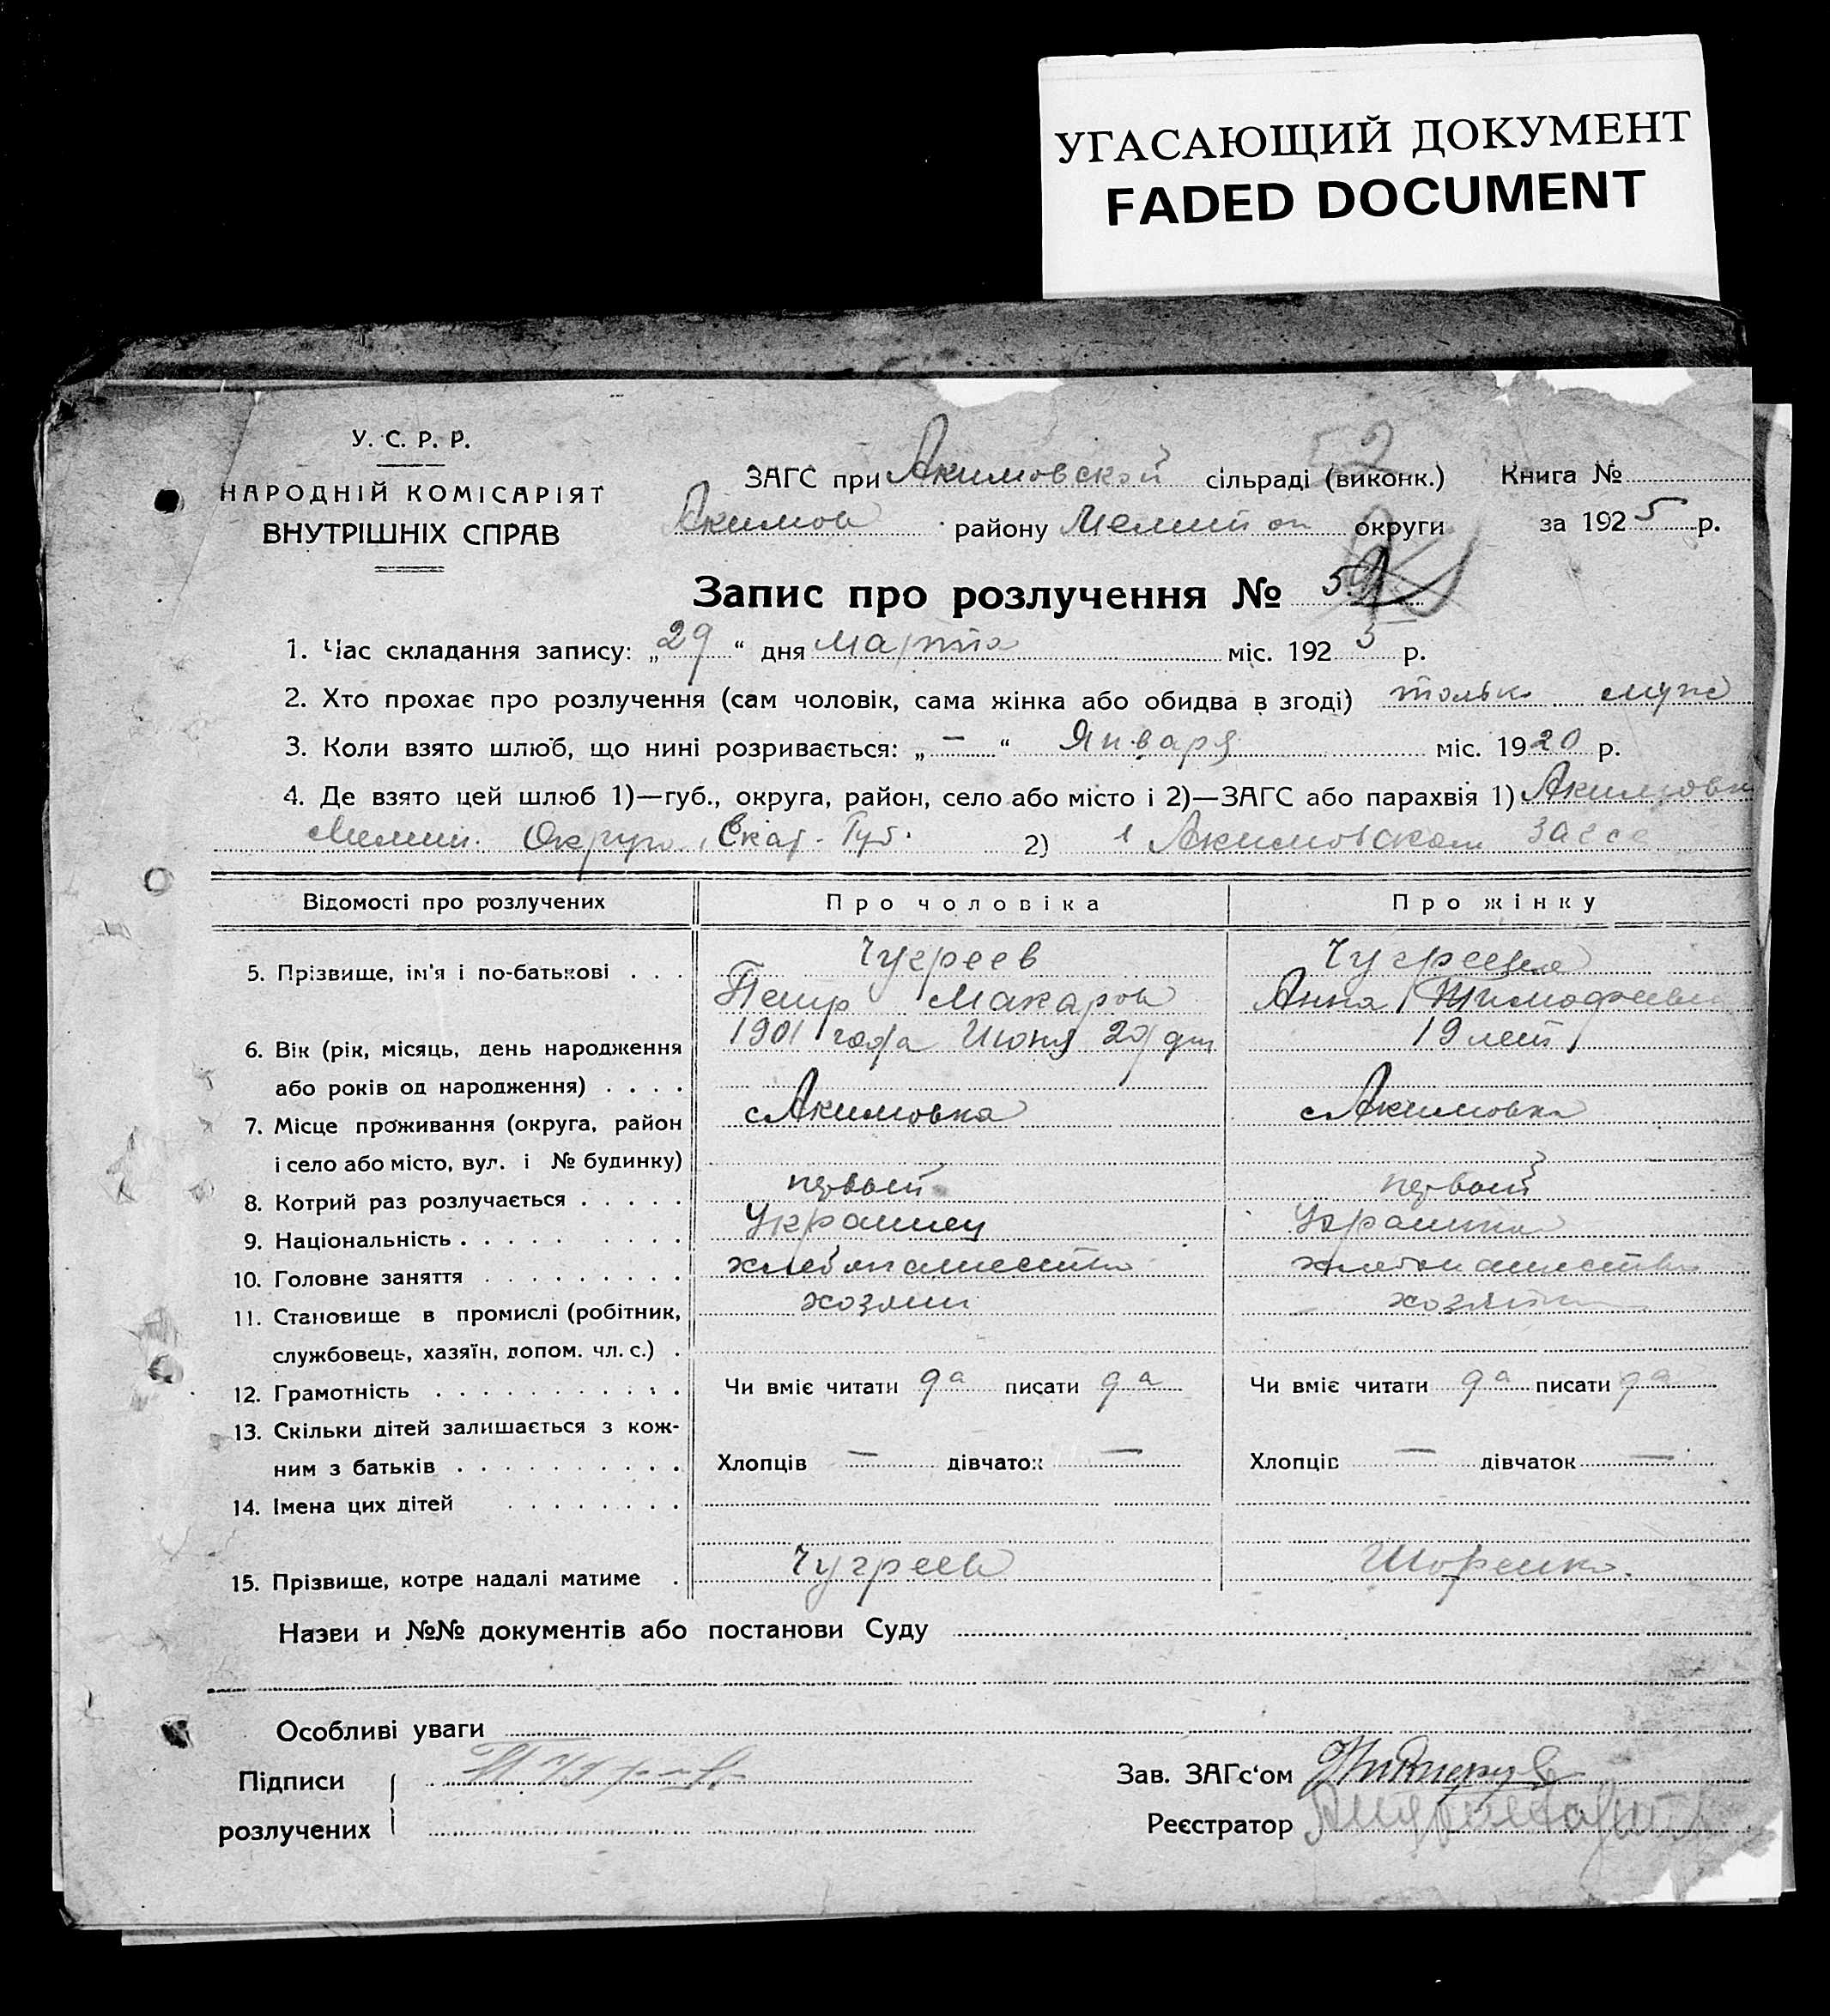 УГАСАЮЩИЙ ДОКУМЕНТ
FADED DOCUMENT
У. С. Р. Р.
НАРОДНІЙ КОМІСАРІЯТ
ВНУТРІШНІХ СПРАВ
ЗАГС при Акимовской сільраді (виконк.) Книга №
Акимов району Мелитоп округи за 1925 р.
Запис про розлучення №
1. Час складання запису: „29“ дня марта міс. 1925 р.
2. Хто прохає про розлучення (сам чоловік, сама жінка або обидва в згоді) только муж
3. Коли взято шлюб, що нині розривається: „—“ Января міс. 1920 р.
4. Де взято цей шлюб 1)—губ., округа, район, село або місто і 2)—ЗАГС або парахвія 1) Акимовка
Мелит. Округа, Екат. Губ. 2) в Акимовском загсе
Відомості про розлучених Про чоловіка Про жінку
5. Прізвище, ім'я і по-батькові . . . Чугреев Чугреева
Петр Макаров Анна Тимофеевна
6. Вік (рік, місяць, день народження 1901 года Июня 29 дня 19 лет
або років од народження) . . . .
7. Місце проживання (округа, район с Акимовка с Акимовка
і село або місто, вул. і № будинку)
8. Котрий раз розлучається . . . . . первый первый
9. Національність . . . . . . . . . Украинец Украинка
10. Головне заняття . . . . . . . . . хлебопашество хлебопашество
11. Становище в промислі (робітник, хозяин хозяйка
службовець, хазяїн, допом. чл. с.) .
12. Грамотність . . . . . . . . . . . Чи вміє читати да писати да Чи вміє читати да писати да
13. Скільки дітей залишається з кож-
ним з батьків . . . . . . . . . . Хлопців — дівчаток — Хлопців — дівчаток —
14. Імена цих дітей . . . . . . . .
15. Прізвище, котре надалі матиме . Чугреев Шоренко.
Назви и №№ документів або постанови Суду
Особливі уваги
Підписи Зав. ЗАГс‘ом
розлучених Реєстратор